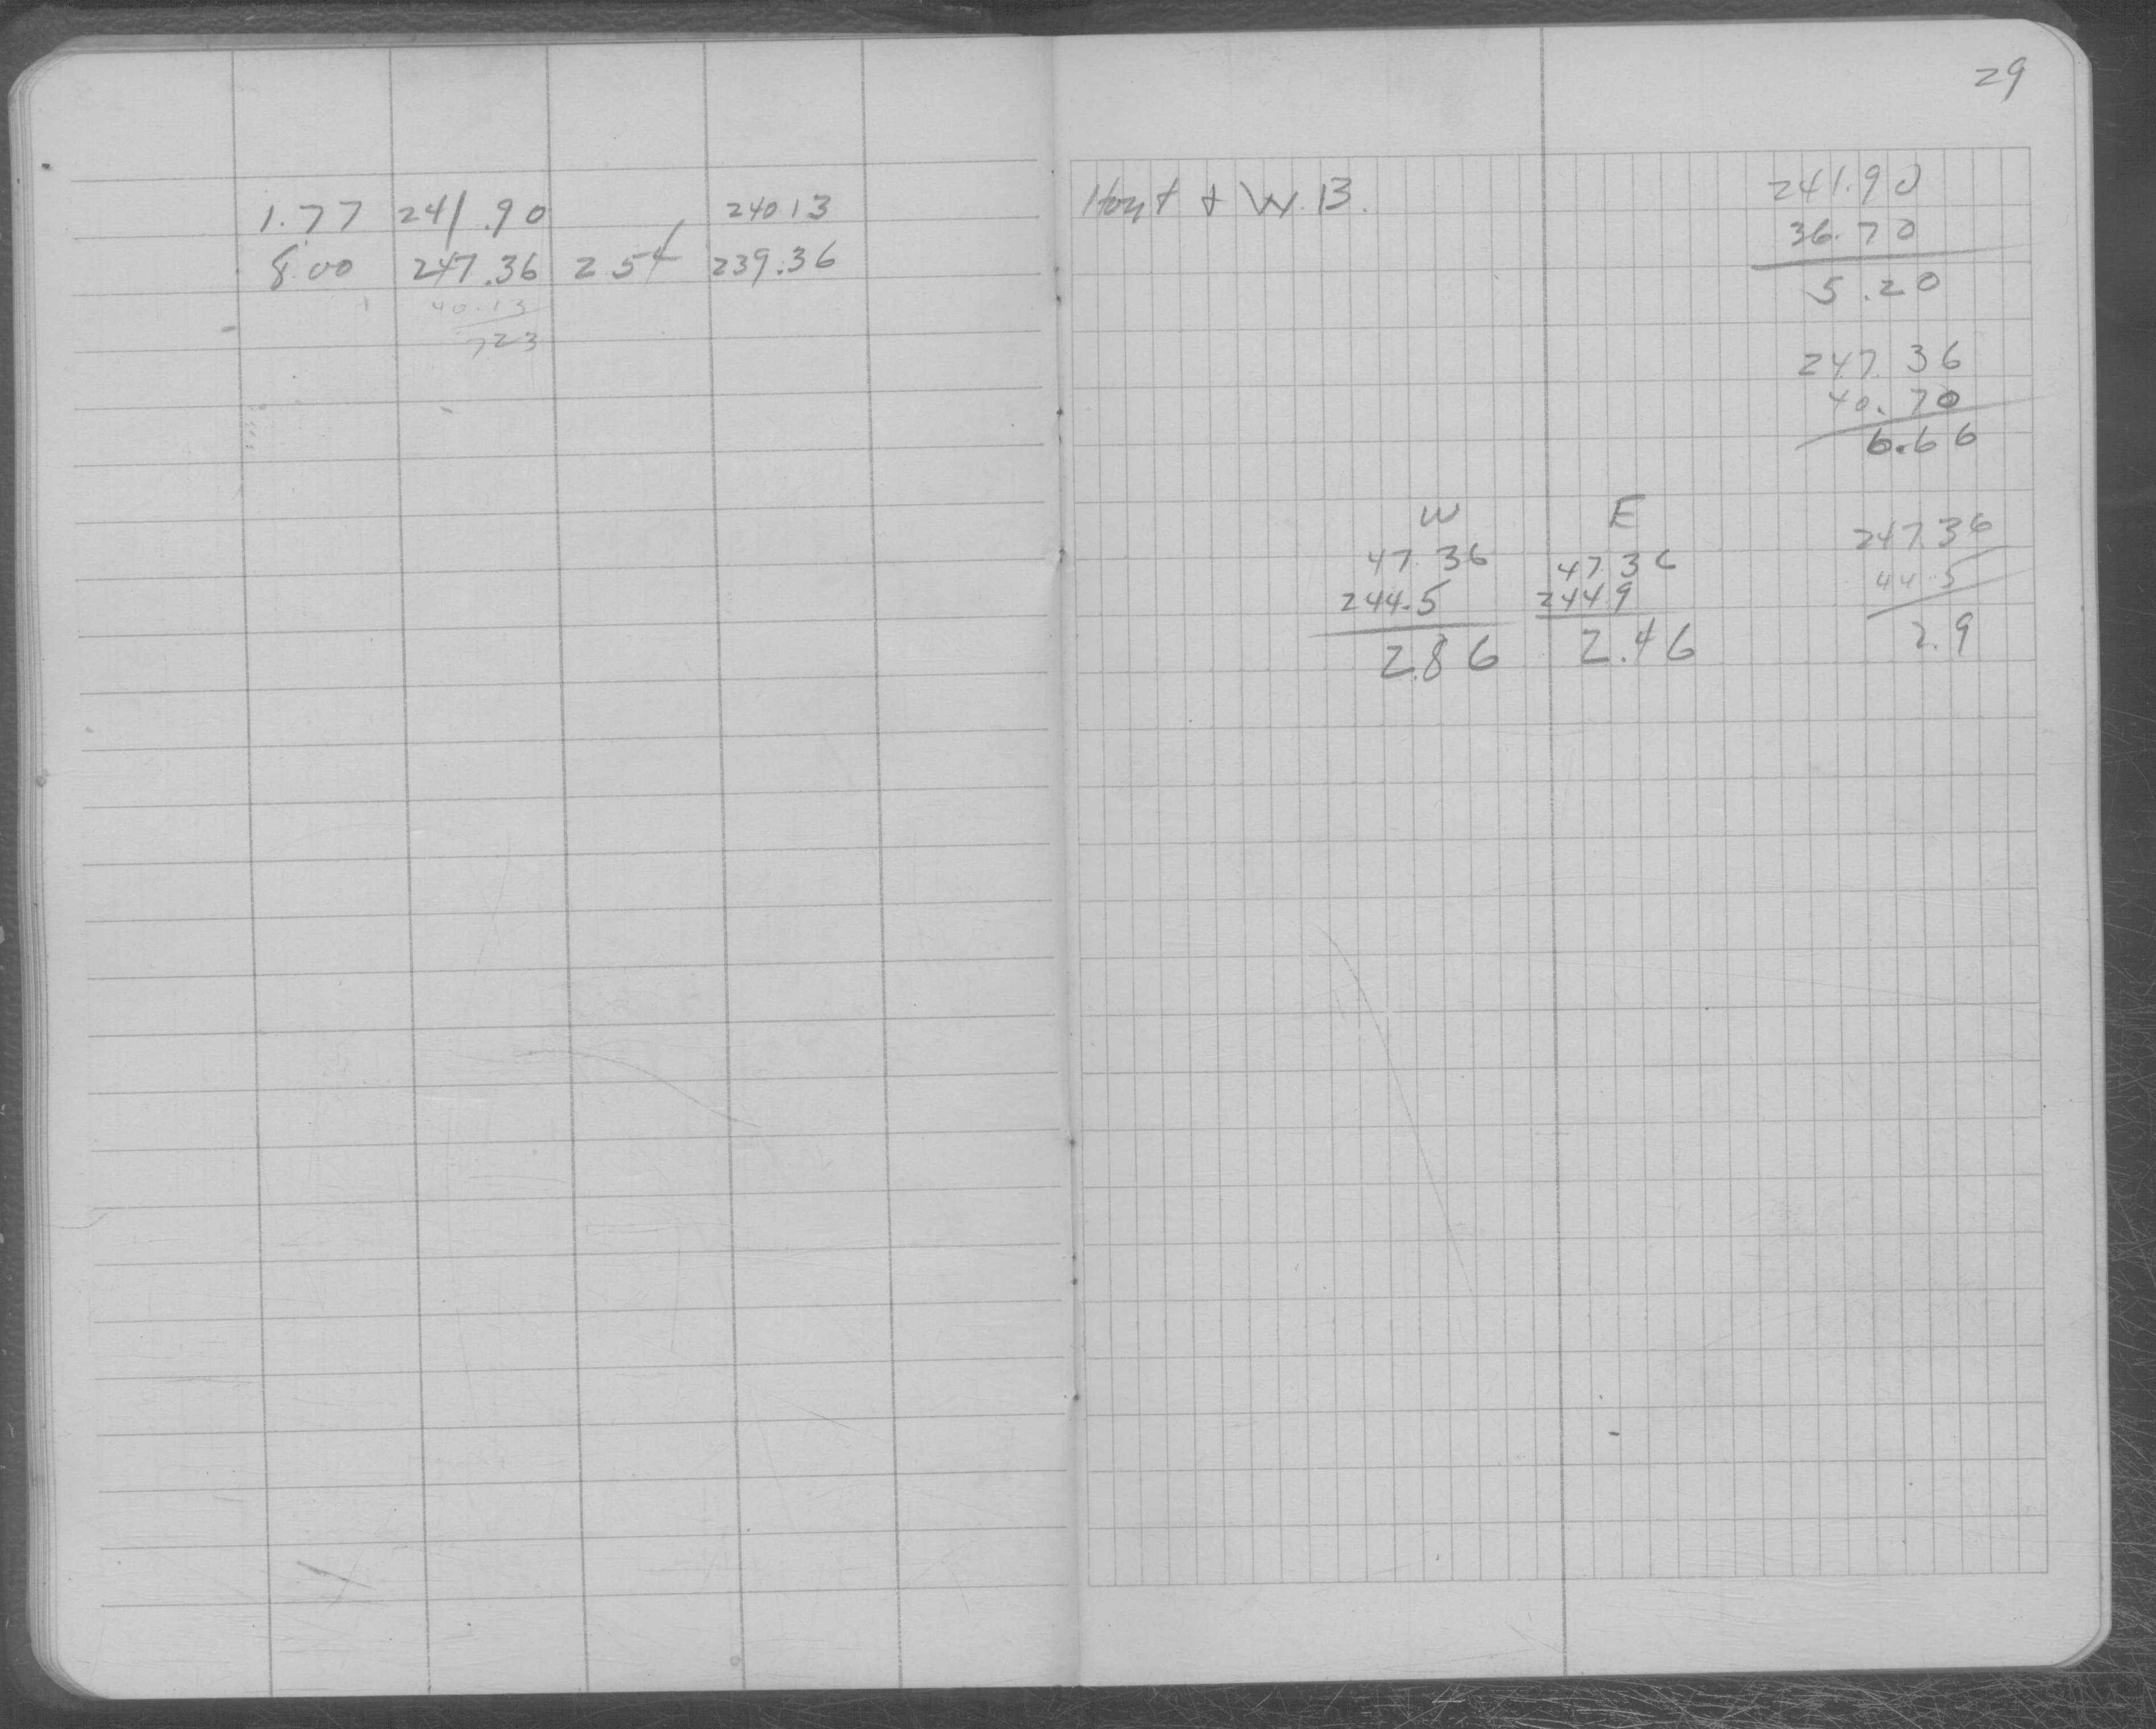 1.77 241.90 240 13
8.00 247.36 2 54 239.36
40.13
723
29
Hoyt + W. B.
241.90
36.70
5.20
247.36
40.70
6.66
W E
47.36 47.36
244.5 244 9
2.86 2.46
247.36
44.5
2.9